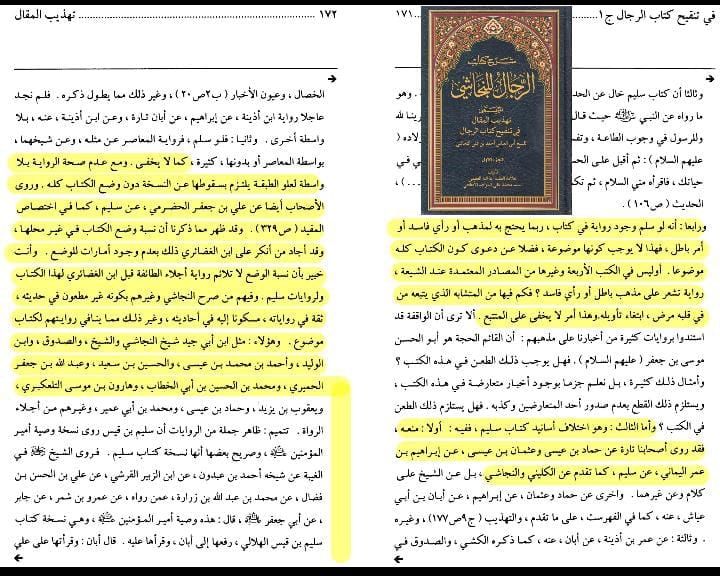 في تنقيح كتاب الرجال ج١ ........ ١٧١
وثالثا أن كتاب سليم خال عن الحد
ما رواه عن النبي ﷺ حيث قال
وللرسول في وجوب الطاعة ، وتف
عليهم السلام ) : ثم أقبل على الح
حياتك ، فاقرأه مني السلام ، ثم تك
الحديث (ص١٠٦) .
شرح كتاب
الرجال للنجاشي
تهذيب المقال
في تنقيح كتاب الرجال
ورابعا: أنه لو سلم وجود رواية في كتاب ، ربما يحتج به لمذهب أو رأي فاسد أو
أمر باطل ، فهذا لا يوجب كونها موضوعة ، فضلا عن دعوى كون الكتاب كله
موضوعا . أوليس في الكتب الأربعة وغيرها من المصادر المعتمدة عند الشيعة ،
رواية تشعر على مذهب باطل أو رأي فاسد ؟ فكم فيها من المتشابه الذي يتبعه من
في قلبه مرض ، ابتغاء تأويله.وهذا أمر لا يخفى على المتتبع . ألا ترى أن الواقفة قد
استندوا بروايات كثيرة من أخبارنا على مذهبهم : أن القائم الحجة هو أبو الحسن
موسى بن جعفر ( عليهم السلام ) . فهل يوجب ذلك الطعن في هذه الكتب ؟
وأمثال ذلك كثيرة ، بل نعلم جزما بوجود أخبار متعارضة في هذه الكتب ،
ويستلزم ذلك القطع بعدم صدور أحد المتعارضين وكذبه . فهل يستلزم ذلك الطعن
في الكتب ؟ وأما الثالث : وهو اختلاف أسانيد كتاب سليم ، ففيه : أولا : منعه ،
فقد روى أصحابنا تارة عن حماد بن عيسى وعثمان بن عيسى ، عن إبراهيم بن
عمر اليماني ، عن سليم ، كما تقدم عن الكليني والنجاشي ، بل عن الشيخ على
كلام وعن غيرهما . واخرى عن حماد وعثمان ، عن إبراهيم ، عن أبان بن أبي
عياش ، عنه ، كما في الفهرست ، على ما تقدم ، والتهذيب ( ج٩ص١٧٧) ، وغيره
. وثالثة : عن عمر بن أذينة ، عن أبان ، عنه ، كما ذكره الكشي ، والصدوق في
١٧٢ ........ تهذيب المقال
الخصال ، وعيون الأخبار ( ب٢ص٢٠ ) ، وغير ذلك مما يطول ذكره . فلم نجد
عاجلا رواية ابن أذينة ، عن إبراهيم ، عن أبان تارة ، وعن ابن أذينة ، عنه ، بلا
واسطة أخرى . وثانيا : فلو سلم ، فرواية المعاصر عن مثله ، وعن شيخهما ،
بواسطة المعاصر أو بدونها ، كثيرة ، كما لا يخفى . ومع عدم صحة الرواية بلا
واسطة لعلو الطبقة يلتزم بسقوطها عن النسخة دون وضع الكتاب كله . وروى
الأصحاب أيضا عن علي بن جعفر الحضرمي ، عن سليم ، كما في اختصاص
المفيد (ص٣٢٩) . وقد ظهر مما ذكرنا أن نسبة وضع الكتاب في غير محلها ،
وقد أجاد من أنكر على ابن الغضائري ذلك بعدم وجود أمارات للوضع . وأنت
خبير بأن نسبة الوضع لا تلائم رواية أجلاء الطائفة قبل ابن الغضائري لهذا الكتاب
ولروايات سليم . وفيهم من صرح النجاشي وغيرهم بكونه غير مطعون في حديثه ،
ثقة في رواياته ، مسكونا إليه في أحاديثه ، وغير ذلك مما ينافي روايتهم لكتاب
موضوع . وهؤلاء : مثل ابن أبي جيد شيخ النجاشي والشيخ ، والصدوق ، وابن
الوليد ، وأحمد بن محمد بن عيسى ، والحسين بن سعيد ، وعبد الله بن جعفر
الحميري ، ومحمد بن الحسين بن أبي الخطاب ، وهارون بن موسى التلعكبري ،
ويعقوب بن يزيد ، وحماد بن عيسى ، ومحمد بن أبي عمير ، وغيرهم من أجلاء
الرواة . تتميم : ظاهر جملة من الروايات أن سليم بن قيس روى نسخة وصية أمير
المؤمنين ، وصريح بعضها أنها نسخة كتاب سليم . فروى الشيخ في
الغيبة عن شيخه أحمد بن عبدون ، عن ابن الزبير القرشي ، عن علي بن الحسن بن
فضال ، عن محمد بن عبد الله بن زرارة ، عمن رواه ، عن عمرو بن شمر ، عن جابر
، عن أبي جعفر ، قال : هذه وصية أمير المؤمنين ، وهي نسخة كتاب
سليم بن قيس الهلالي ، رفعها إلى أبان ، وقرأها عليه . قال أبان : وقرأتها على علي